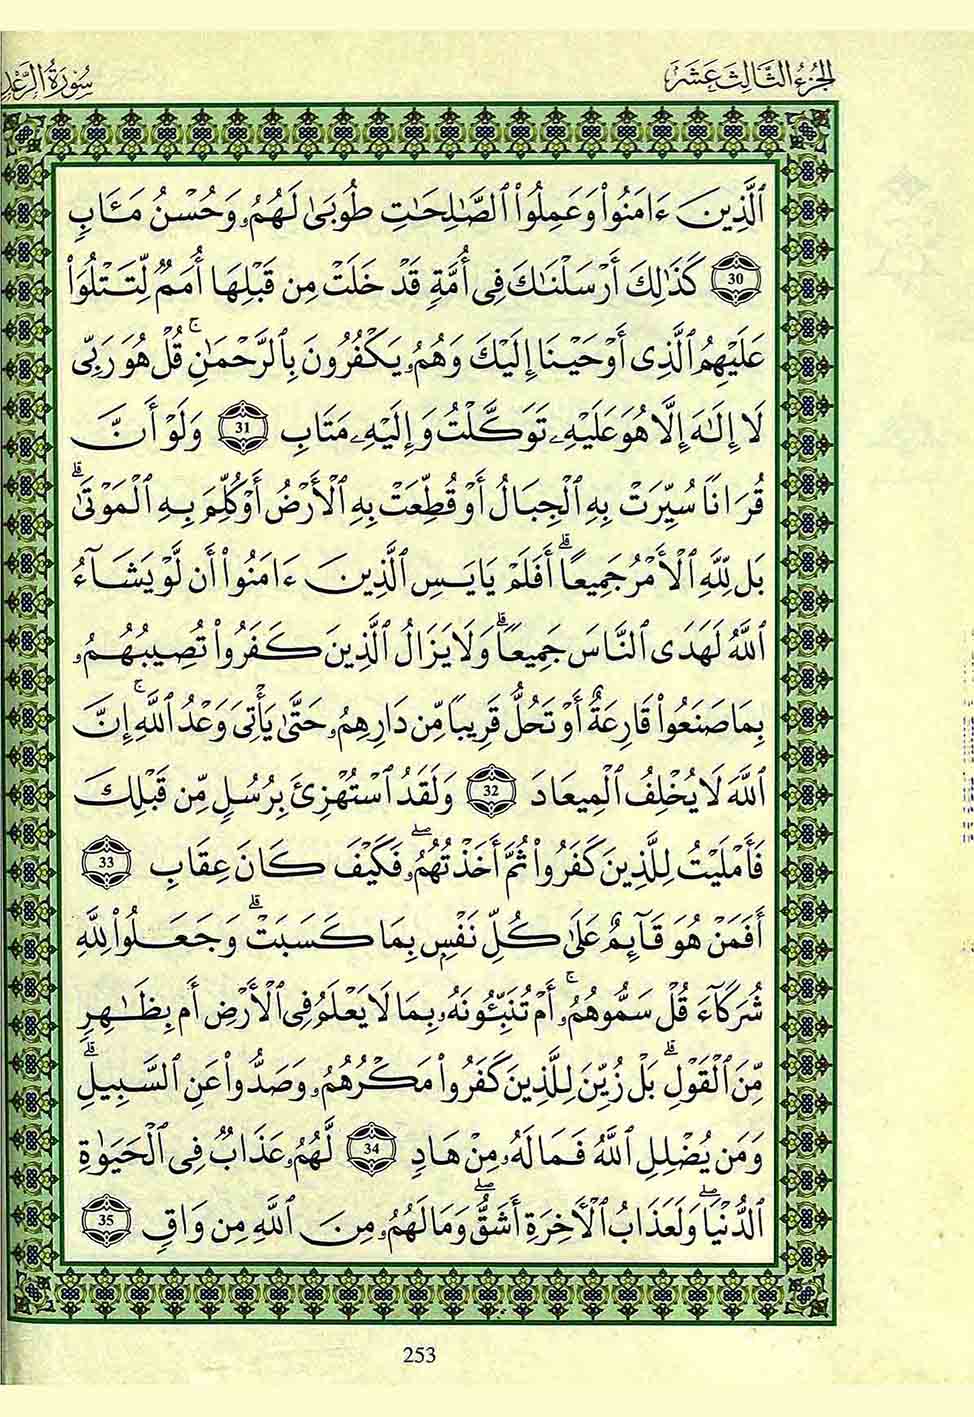 الجزء الثالث عشر
سورة الرعد
ٱلَّذِينَ ءَامَنُواْ وَعَمِلُواْ ٱلصَّٰلِحَٰتِ طُوبَىٰ لَهُمُۥ وَحُسْنُ مَـَٔابٖ
30 كَذَٰلِكَ أَرْسَلْنَٰكَ فِىٓ أُمَّةٖ قَدْ خَلَتْ مِن قَبْلِهَا أُمَمٞ لِّتَتْلُوَاْ
عَلَيْهِمُ ٱلَّذِىٓ أَوْحَيْنَا إِلَيْكَ وَهُمُۥ يَكْفُرُونَ بِٱلرَّحْمَٰنِۚ قُلْ هُوَ رَبِّى
لَا إِلَٰهَ إِلَّا هُوَ عَلَيْهِۦ تَوَكَّلْتُ وَإِلَيْهِۦ مَتَابِ 31 وَلَوْ أَنَّ
قُرَانٗا سُيِّرَتْ بِهِ ٱلْجِبَالُ أَوْ قُطِّعَتْ بِهِ ٱلْأَرْضُ أَوْ كُلِّمَ بِهِ ٱلْمَوْتَىٰۗ
بَل لِّلَّهِ ٱلْأَمْرُ جَمِيعًاۗ أَفَلَمْ يَايَسِ ٱلَّذِينَ ءَامَنُواْ أَن لَّوْ يَشَآءُ
ٱللَّهُ لَهَدَى ٱلنَّاسَ جَمِيعٗاۗ وَلَا يَزَالُ ٱلَّذِينَ كَفَرُواْ تُصِيبُهُمُۥ
بِمَا صَنَعُواْ قَارِعَةٌ أَوْ تَحُلُّ قَرِيبٗا مِّن دَارِهِمُۥ حَتَّىٰ يَأْتِىَ وَعْدُ ٱللَّهِۚ إِنَّ
ٱللَّهَ لَا يُخْلِفُ ٱلْمِيعَادَ 32 وَلَقَدُ ٱسْتُهْزِئَ بِرُسُلٖ مِّن قَبْلِكَ
فَأَمْلَيْتُ لِلَّذِينَ كَفَرُواْ ثُمَّ أَخَذتُّهُمُۥۖ فَكَيْفَ كَانَ عِقَابِ 33
أَفَمَنْ هُوَ قَآئِمٌ عَلَىٰ كُلِّ نَفْسِۭ بِمَا كَسَبَتْۗ وَجَعَلُواْ لِلَّهِ
شُرَكَآءَ قُلْ سَمُّوهُمُۥۚ أَمْ تُنَبِّـُٔونَهُۥ بِمَا لَا يَعْلَمُ فِى ٱلْأَرْضِ أَم بِظَٰهِرٖ
مِّنَ ٱلْقَوْلِۗ بَلْ زُيِّنَ لِلَّذِينَ كَفَرُواْ مَكْرُهُمُۥ وَصَدُّواْ عَنِ ٱلسَّبِيلِۗ
وَمَن يُضْلِلِ ٱللَّهُ فَمَا لَهُۥ مِنْ هَادٖ 34 لَّهُمُۥ عَذَابٞ فِى ٱلْحَيَوٰةِ
ٱلدُّنْيَاۖ وَلَعَذَابُ ٱلْأَخِرَةِ أَشَقُّۖ وَمَا لَهُمُۥ مِنَ ٱللَّهِ مِن وَاقٖ 35
253